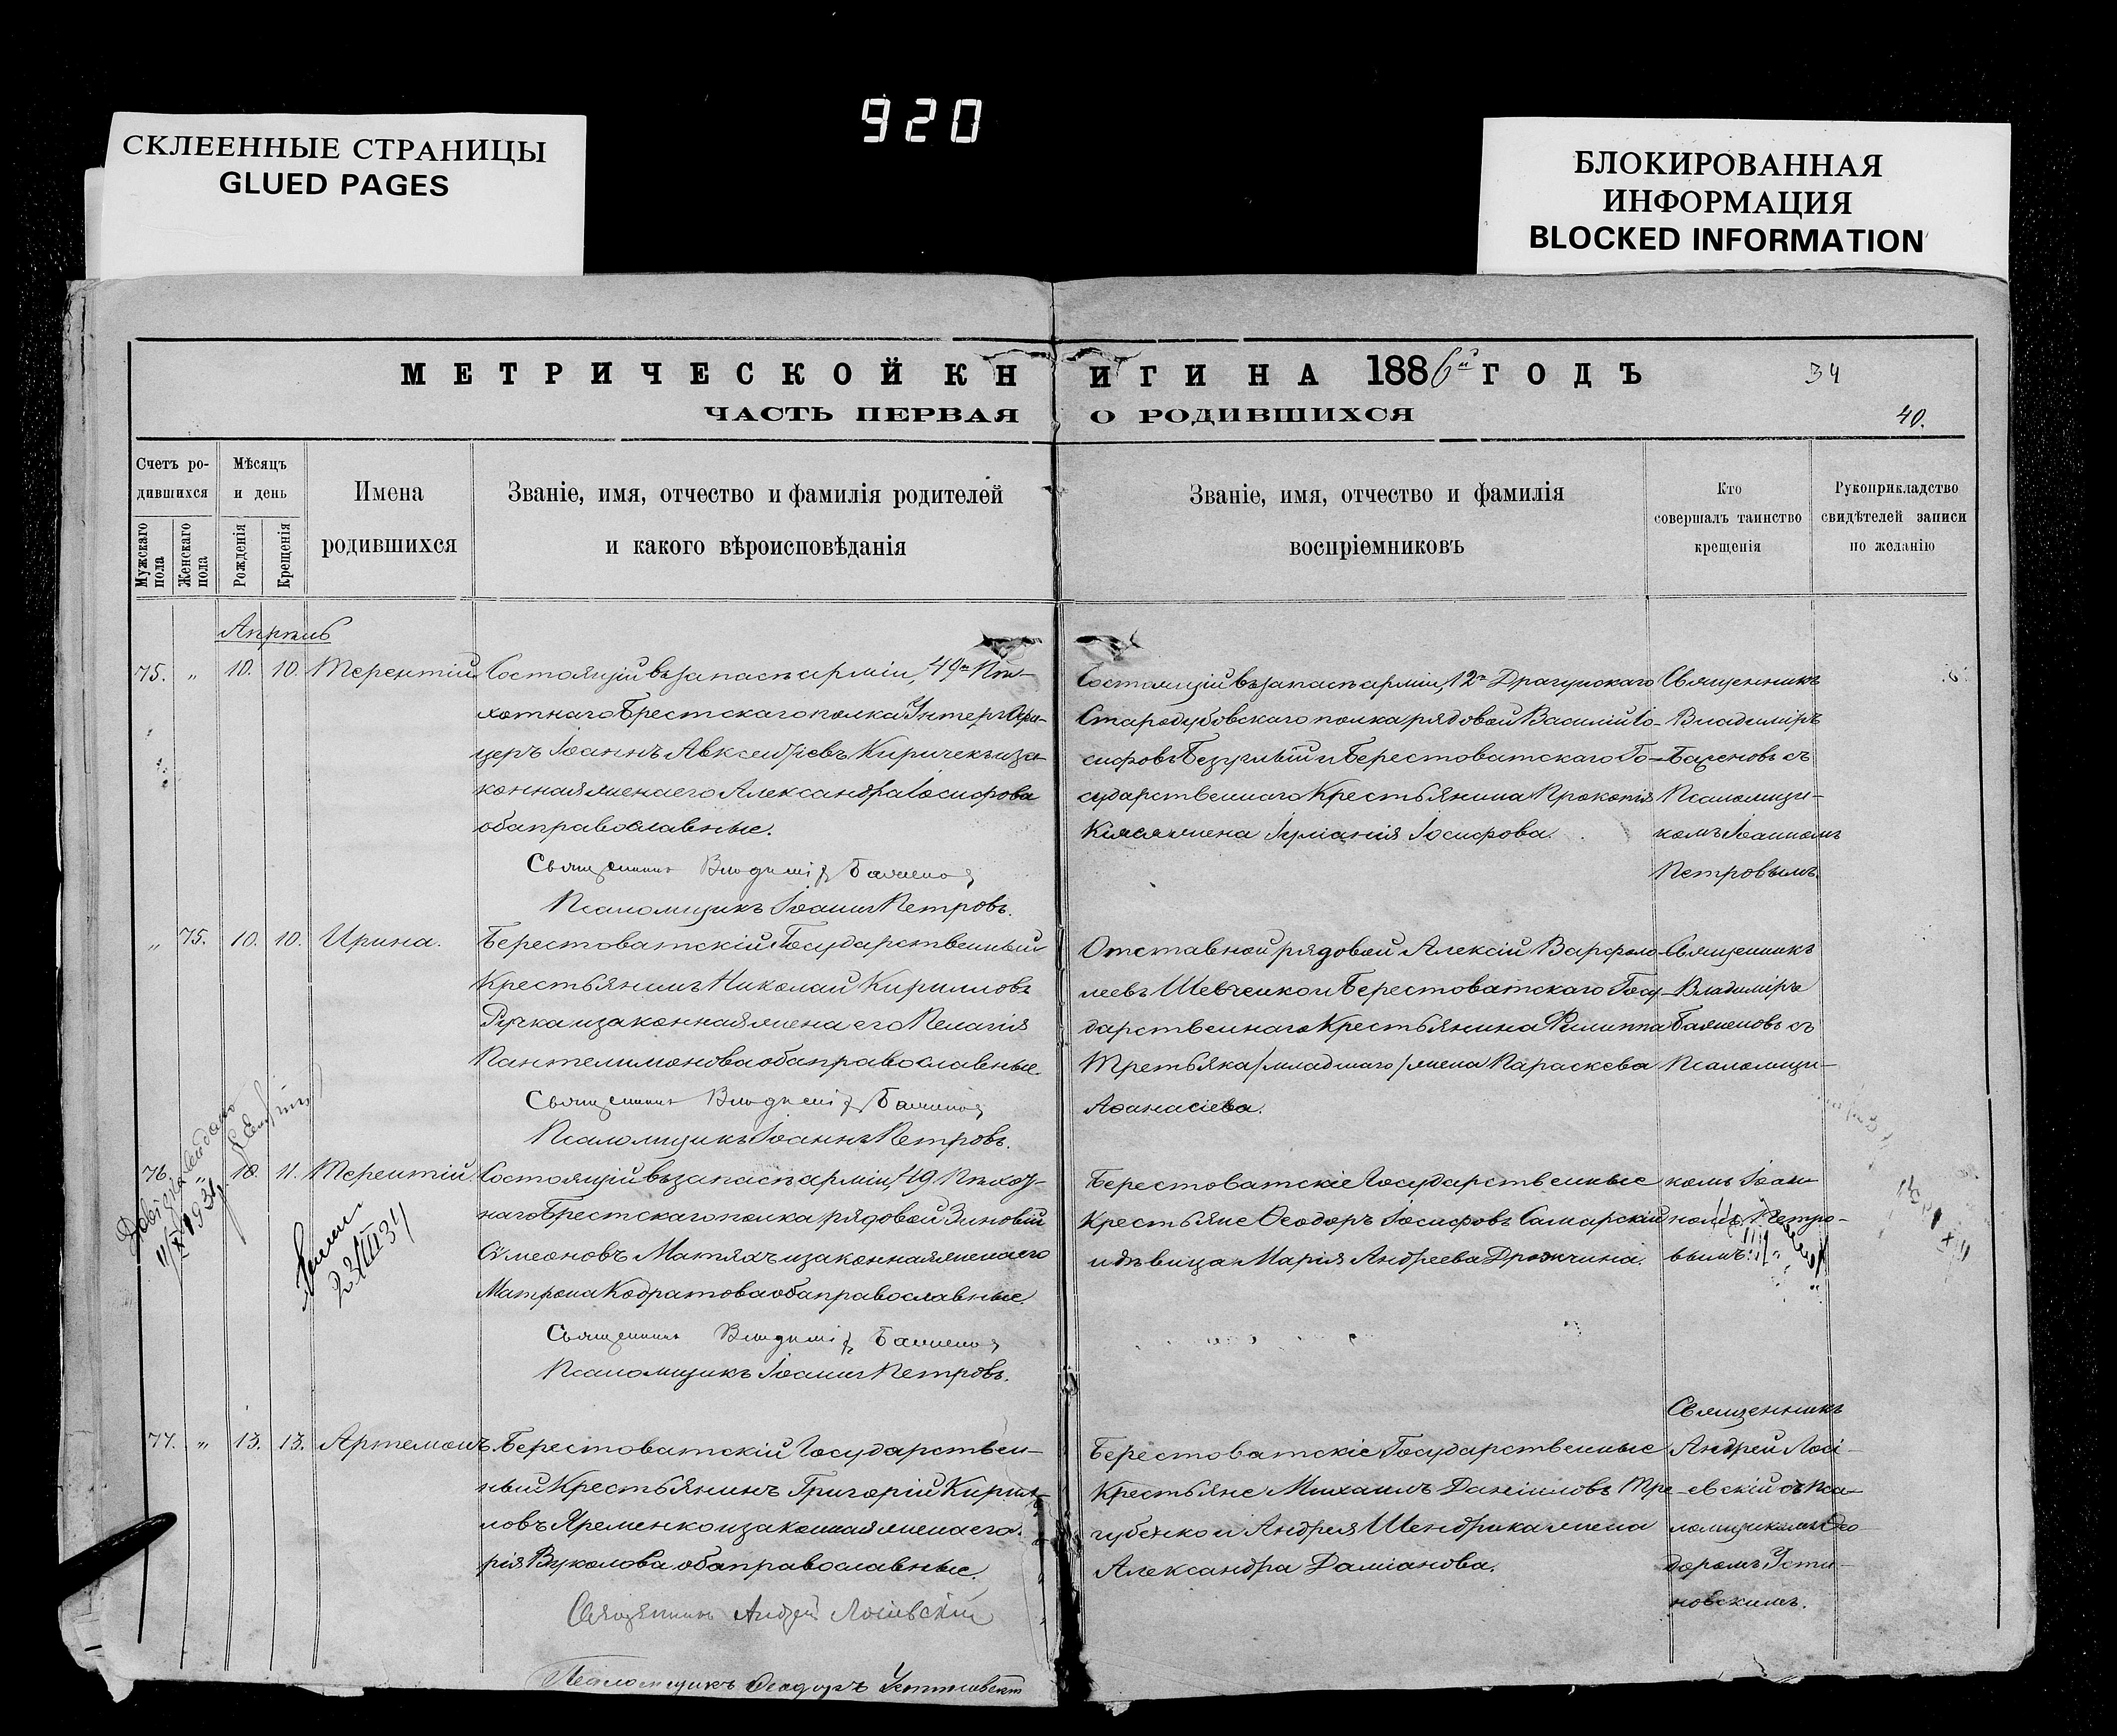 920
СКЛЕЕННЫЕ СТРАНИЦЫ
GLUED PAGES
БЛОКИРОВАННАЯ
ИНФОРМАЦИЯ
BLOCKED INFORMATION
МЕТРИЧЕСКОЙ КНИГИ НА 1886й ГОДЪ
34
ЧАСТЬ ПЕРВАЯ О РОДИВШИХСЯ
40.
Счетъ ро-
дившихся
Мужскаго пола
Женскаго пола
Мѣсяцъ
и день
Рожденія
Крещенія
Имена
родившихся
Званіе, имя, отчество и фамилія родителей
и какого вѣроисповѣданія
Званіе, имя, отчество и фамилія
воспріемниковъ
Кто
совершалъ таинство
крещенія
Рукоприкладство
свидѣтелей записи
по желанію
Апрѣль
75. „ 10. 10. Терентій
Состоящій въ запасѣ арміи, 49го Пѣ-
хотнаго Брестскаго полка Унтеръ Офи-
церъ Іоаннъ Авксентіевъ Киричекъ и за-
конная жена его Александра Іосифова
оба православные.
Священникъ Владиміръ Баженовъ
Псаломщикъ Іоаннъ Петровъ.
Состоящій въ запасѣ арміи, 12го Драгунскаго
Стародубовскаго полка рядовой Василій Іо-
сифовъ Безуглый и Берестоватскаго Го-
сударственнаго Крестьянина Прокопія
жена Іуліанія Іосифова.
Священникъ
Владиміръ
Баженовъ съ
Псаломщи-
комъ Іоанномъ
Петровымъ.
„ 75. 10. 10. Ирина.
Берестоватскій Государственный
Крестьянинъ Николай Кирилловъ
Ручка и законная жена его Пелагія
Пантелимонова оба православные.
Священникъ Владиміръ Баженовъ
Псаломщикъ Іоаннъ Петровъ.
Отставной рядовой Алексій Варфоло-
меевъ Шевченко и Берестоватскаго Госу-
дарственнаго Крестьянина Филиппа
Третьяка /младшаго/ жена Параскева
Аѳанасіева.
Священникъ
Владиміръ
Баженовъ съ
Псаломщи-
76. „ 10. 11. Терентій.
Состоящій въ запасѣ арміи, 49 Пѣхот-
наго Брестскаго полка рядовой Зиновій
Сѵмеоновъ Матяхъ и законная жена его
Матрона Кодратова оба православные.
Священникъ Владиміръ Баженовъ
Псаломщикъ Іоаннъ Петровъ.
Берестоватскіе Государственные
Крестьяне Ѳеодоръ Іосифовъ Самарскій
и дѣвица Марія Андреева Дрожчина.
комъ Іоан-
номъ Петро-
вымъ.
11/X 1934
23/III 34
77. „ 13. 13. Артемонъ
Берестоватскій Государствен-
ный Крестьянинъ Григорій Кирил-
ловъ Яременко и законная жена его
рія Вуколова оба православные.
Священникъ Андрей Лосіевскій
Псаломщикъ Ѳеодоръ Устиновскій
Берестоватскіе Государственные
Крестьяне Михаилъ Даніиловъ Тре-
губенко и Андрея Шендрика жена
Александра Даміанова.
Священникъ
Андрей Лосі-
евскій съ Пса-
ломщикомъ Ѳео-
доромъ Усти-
новскимъ.